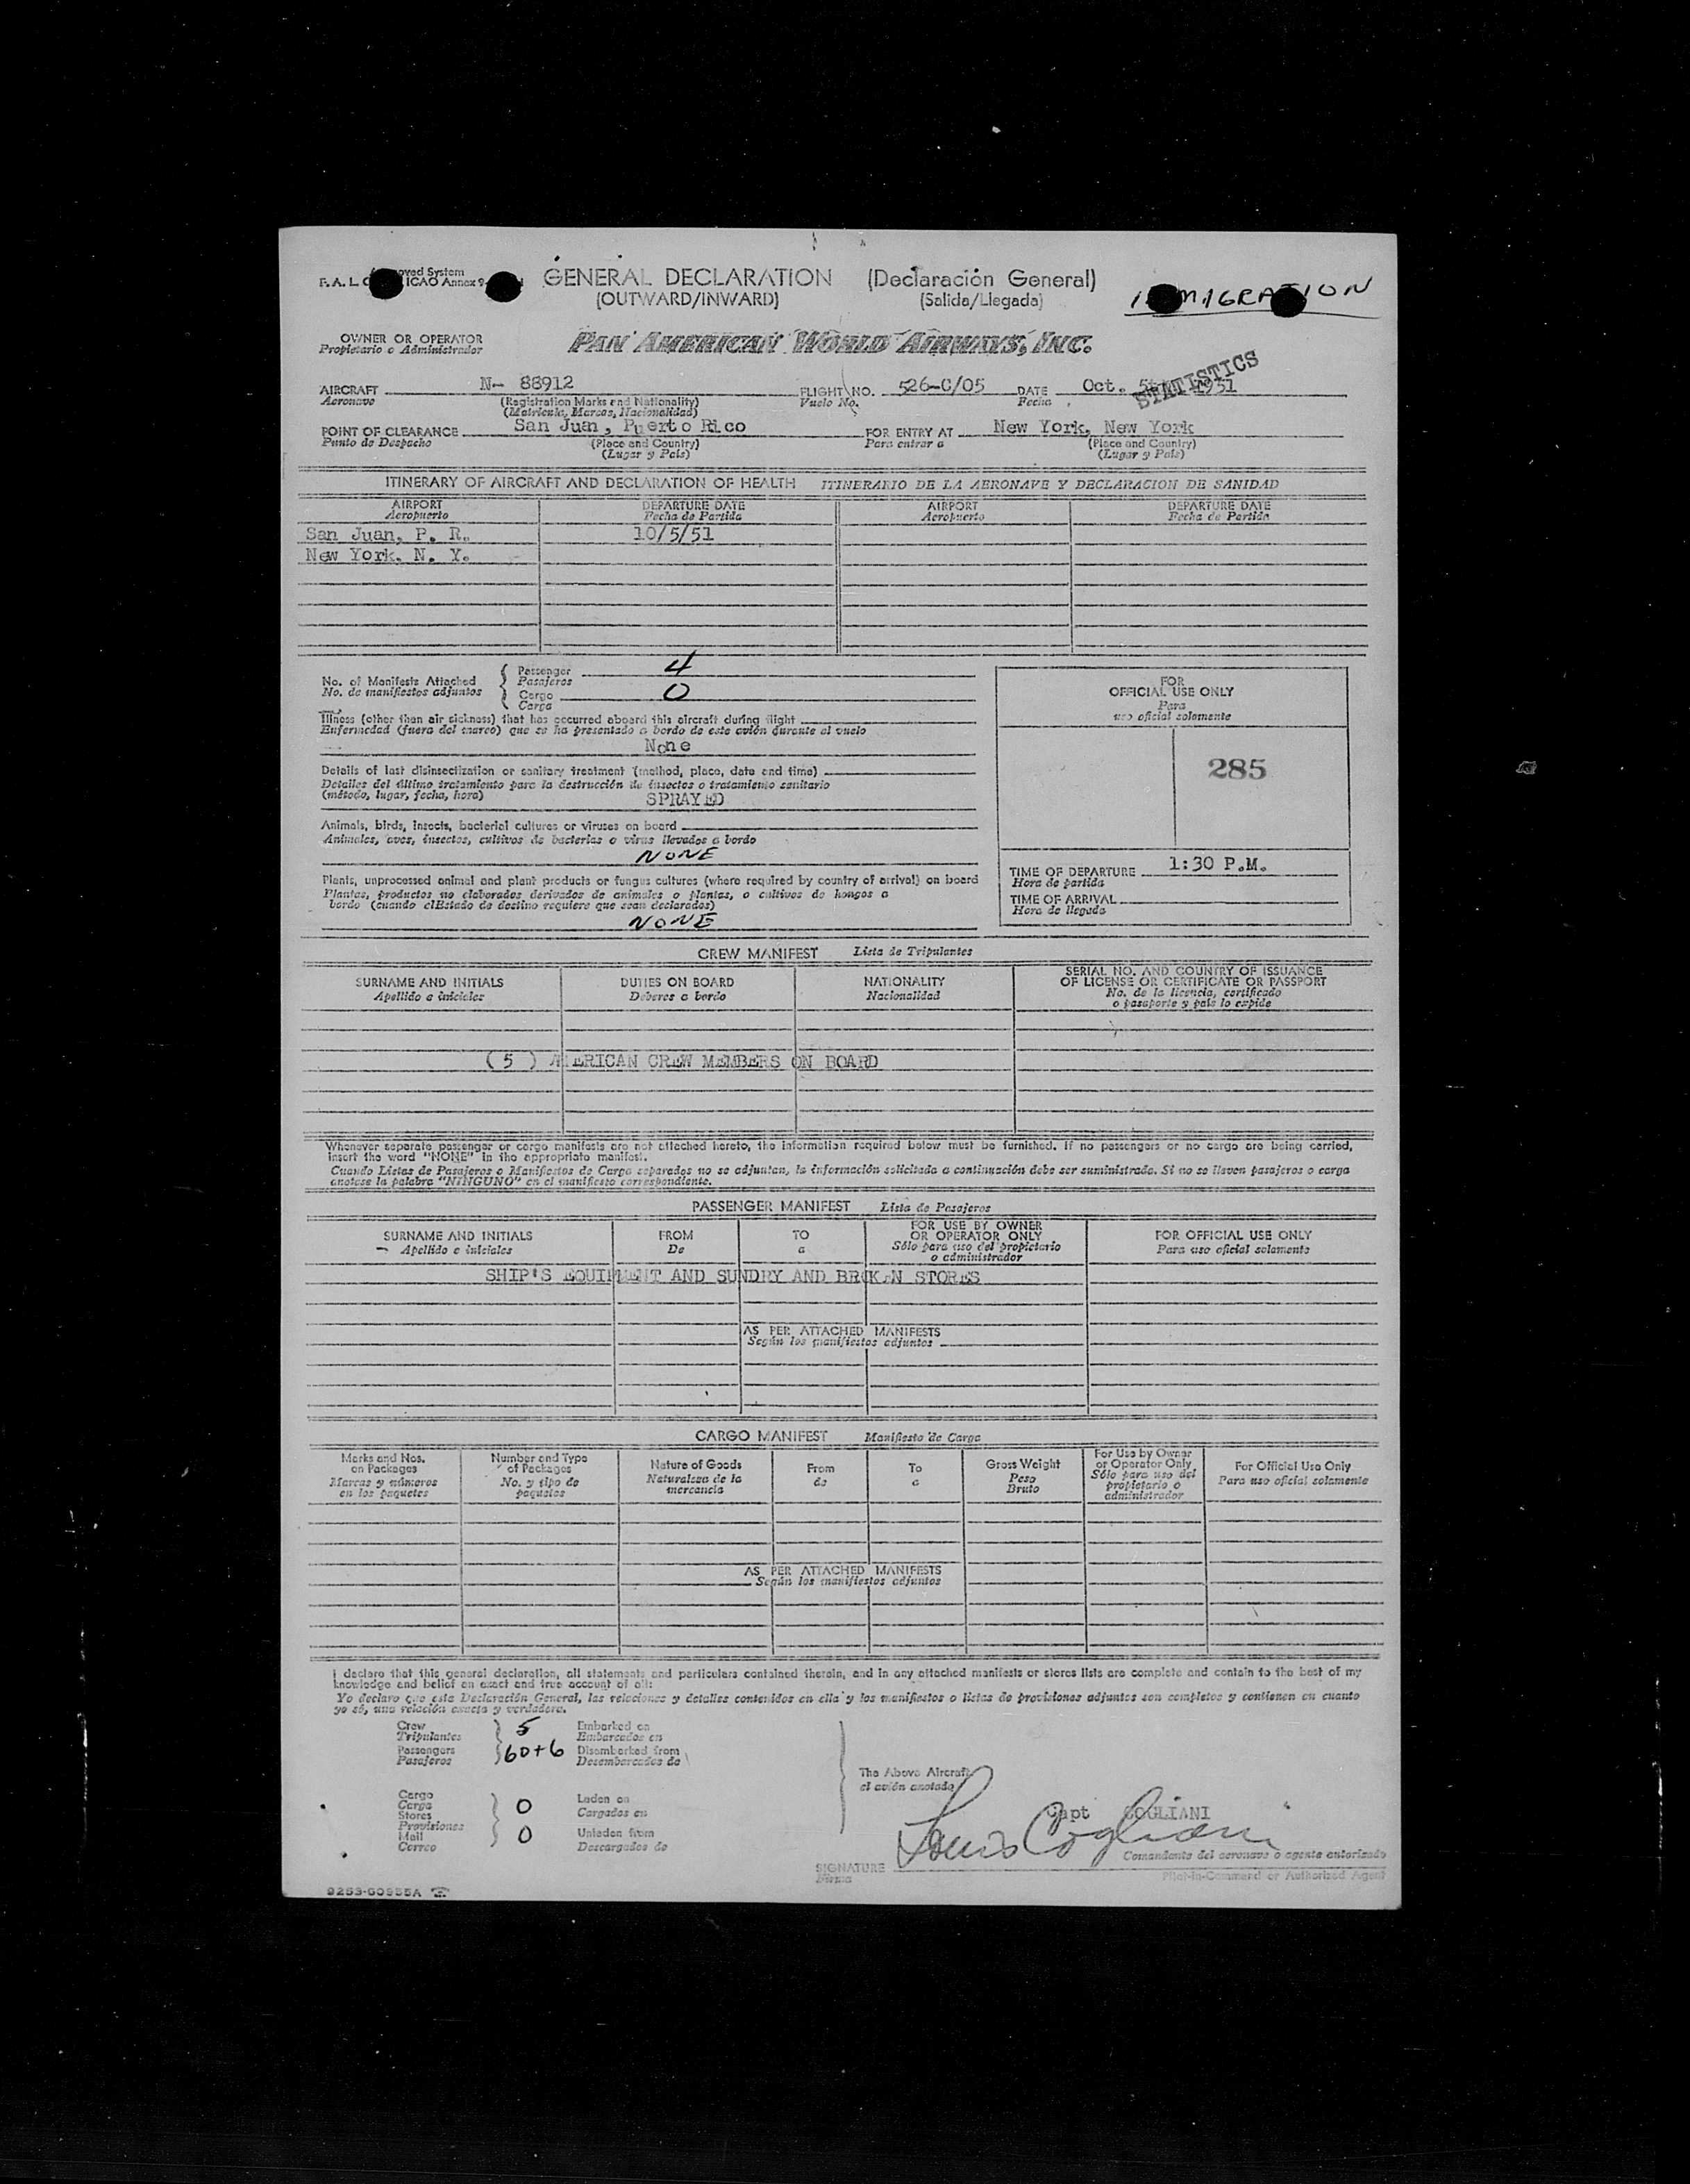 F. A. L. ICAO Annex 9
GENERAL DECLARATION (Declaración General)
(OUTWARD/INWARD) (Salida/Llegada)
IMMIGRATION
OWNER OR OPERATOR
Propietario o Administrador
PAN AMERICAN WORLD AIRWAYS, INC.
STATISTICS
AIRCRAFT N- 88912 FLIGHT NO. 526-C/05 DATE Oct. 5th 1951
Aeronave (Registration Marks and Nationality) Vuelo No. Fecha
(Matricula, Marcas, Nacionalidad)
POINT OF CLEARANCE San Juan, Puerto Rico FOR ENTRY AT New York, New York
Punto de Despacho (Place and Country) Para entrar a (Place and Country)
(Lugar y País) (Lugar y País)
ITINERARY OF AIRCRAFT AND DECLARATION OF HEALTH ITINERARIO DE LA AERONAVE Y DECLARACION DE SANIDAD
AIRPORT DEPARTURE DATE AIRPORT DEPARTURE DATE
Aeropuerto Fecha de Partida Aeropuerto Fecha de Partida
San Juan, P. R. 10/5/51
New York, N. Y.
No. of Manifests Attached Passenger 4
No. de manifiestos adjuntos Pasajeros
Cargo 0
Carga
Illness (other than air sickness) that has occurred aboard this aircraft during flight
Enfermedad (fuera del mareo) que se ha presentado a bordo de este avión durante el vuelo
None
Details of last disinsectization or sanitary treatment (method, place, date and time)
Detalles del último tratamiento para la destrucción de insectos o tratamiento sanitario
(método, lugar, fecha, hora)
SPRAYED
Animals, birds, insects, bacterial cultures or viruses on board
Animales, aves, insectos, cultivos de bacterias o virus llevados a bordo
NONE
Plants, unprocessed animal and plant products or fungus cultures (where required by country of arrival) on board
Plantas, productos no elaborados derivados de animales o plantas, o cultivos de hongos a
bordo (cuando el Estado de destino requiere que sean declarados)
NONE
FOR
OFFICIAL USE ONLY
Para
uso oficial solamente
285
TIME OF DEPARTURE 1:30 P.M.
Hora de partida
TIME OF ARRIVAL
Hora de llegada
CREW MANIFEST Lista de Tripulantes
SURNAME AND INITIALS DUTIES ON BOARD NATIONALITY SERIAL NO. AND COUNTRY OF ISSUANCE
OF LICENSE OR CERTIFICATE OR PASSPORT
Apellido e iniciales Deberes a bordo Nacionalidad No. de la licencia, certificado
o pasaporte y país lo expide
( 5 ) AMERICAN CREW MEMBERS ON BOARD
Whenever separate passenger or cargo manifests are not attached hereto, the information required below must be furnished. If no passengers or no cargo are being carried,
insert the word "NONE" in the appropriate manifest.
Cuando Listas de Pasajeros o Manifiestos de Carga separados no se adjuntan, la información solicitada a continuación debe ser suministrada. Si no se llevan pasajeros o carga
anotese la palabra "NINGUNO" en el manifiesto correspondiente.
PASSENGER MANIFEST Lista de Pasajeros
SURNAME AND INITIALS FROM TO FOR USE BY OWNER
OR OPERATOR ONLY FOR OFFICIAL USE ONLY
Apellido e iniciales De a Sólo para uso del propietario
o administrador Para uso oficial solamente
SHIP'S EQUIPMENT AND SUNDRY AND BROKEN STORES
AS PER ATTACHED MANIFESTS
Según los manifiestos adjuntos
CARGO MANIFEST Manifiesto de Carga
Marks and Nos.
on Packages
Marcas y números
en los paquetes
Number and Type
of Packages
No. y tipo de
paquetes
Nature of Goods
Naturaleza de la
mercancia
From
de
To
a
Gross Weight
Peso
Bruto
For Use by Owner
or Operator Only
Sólo para uso del
propietario o
administrador
For Official Use Only
Para uso oficial solamente
AS PER ATTACHED MANIFESTS
Según los manifiestos adjuntos
I declare that this general declaration, all statements and particulars contained therein, and in any attached manifests or stores lists are complete and contain to the best of my
knowledge and belief an exact and true account of all:
Yo declaro que esta Declaración General, las relaciones y detalles contenidos en ella y los manifiestos o listas de provisiones adjuntos son completos y contienen en cuanto
yo sé, una relación exacta y verdadera.
Crew 5 Embarked on
Tripulantes Embarcados en
Passengers 60+6 Disembarked from
Pasajeros Desembarcados de
Cargo
Carga 0 Laden on
Stores Cargados en
Provisiones
Mail 0 Unladen from
Correo Descargados de
The Above Aircraft
el avión anotado
Capt COGLIANI
Louis Cogliani
Comandante del aeronave o agente autorizado
SIGNATURE
Firma
Pilot-in-Command or Authorized Agent
9263-G0955A